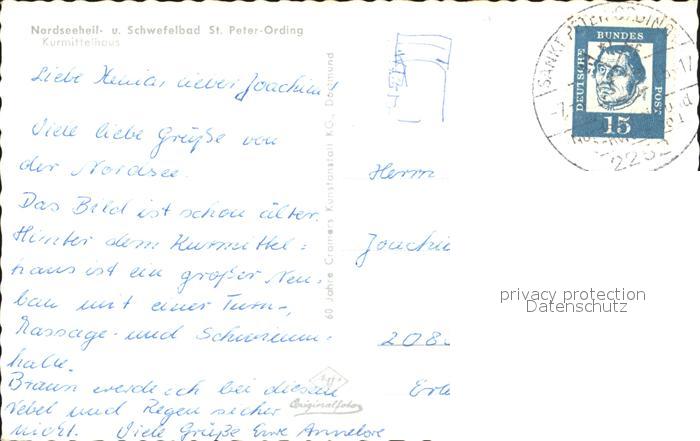 Nordseeheil- u. Schwefelbad St. Peter-Ording
Kurmittelhaus
Liebe lieber Joachim!
Viele liebe Grüße von
der Nordsee.
Das Bild ist schon älter.
Hinter dem Kurmittel=
haus ist ein großer Neu=
bau mit einer Turn-,
Massage- und Schwimm=
halle.
Braun werde ich bei diesem
Nebel und Regen sicher
nicht. Viele Grüße Eure Annelore
60 Jahre Cramers Kunstanstalt KG., Dortmund
Originalfoto
SANKT PETER-ORDING
2252
DEUTSCHE
BUNDES
POST
15
Herrn
Joachi
208
privacy protection
Datenschutz